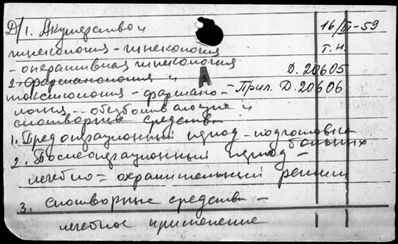 Д/1. Акушерство и 16/III-59
гинекология - гинекология т. н.
- оперативная гинекология Д. 20605
2. фармакология и
токсикология - фармако- - Прил. Д. 20606
логия - обезболивающие и
снотворные средства
1. Предоперационный период - подготовка больных
2. Послеоперационный период -
лечебно-охранительный режим
3. снотворные средства -
лечебное применение